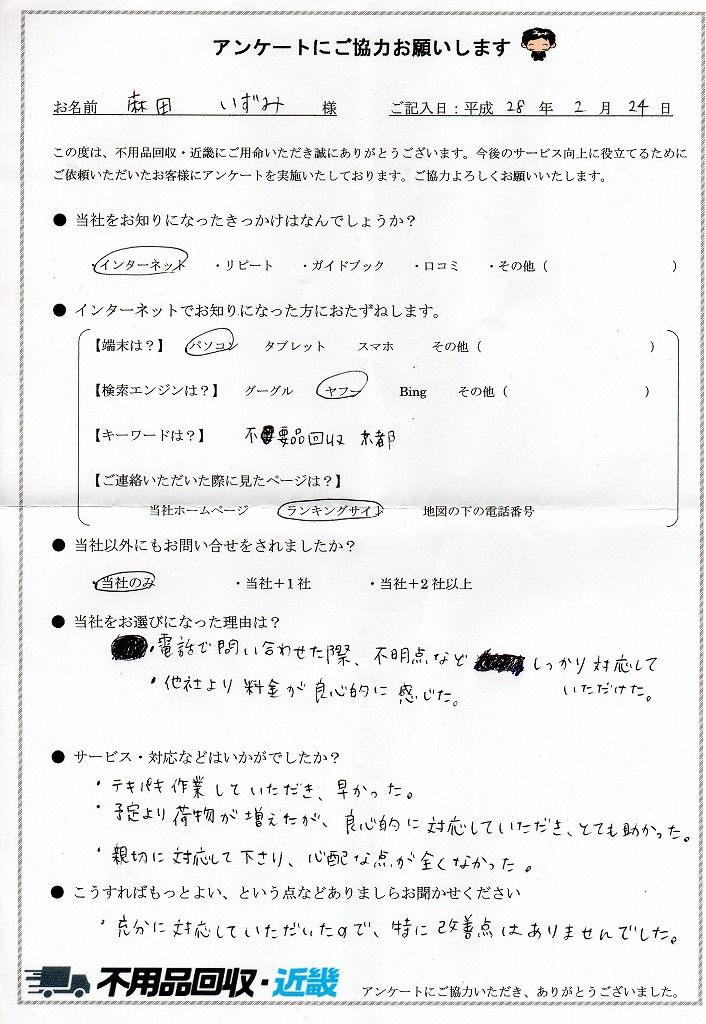 アンケートにご協力お願いします
お名前 麻田 いずみ 様 ご記入日：平成 28 年 2 月 24 日
この度は、不用品回収・近畿にご用命いただき誠にありがとうございます。今後のサービス向上に役立てるために
ご依頼いただいたお客様にアンケートを実施いたしております。ご協力よろしくお願いいたします。
● 当社をお知りになったきっかけはなんでしょうか？
・インターネット ・リピート ・ガイドブック ・口コミ ・その他（ ）
● インターネットでお知りになった方におたずねします。
【端末は？】 パソコン タブレット スマホ その他（ ）
【検索エンジンは？】 グーグル ヤフー Bing その他（ ）
【キーワードは？】 不要品回収 京都
【ご連絡いただいた際に見たページは？】
当社ホームページ ランキングサイト 地図の下の電話番号
● 当社以外にもお問い合せをされましたか？
・当社のみ ・当社＋1社 ・当社＋2社以上
● 当社をお選びになった理由は？
・電話で問い合わせた際、不明点など しっかり対応して
いただけた。
・他社より料金が良心的に感じた。
● サービス・対応などはいかがでしたか？
・テキパキ作業していただき、早かった。
・予定より荷物が増えたが、良心的に対応していただき、とても助かった。
・親切に対応して下さり、心配な点が全くなかった。
● こうすればもっとよい、という点などありましらお聞かせください
・充分に対応していただいたので、特に改善点はありませんでした。
不用品回収・近畿 アンケートにご協力いただき、ありがとうございました。